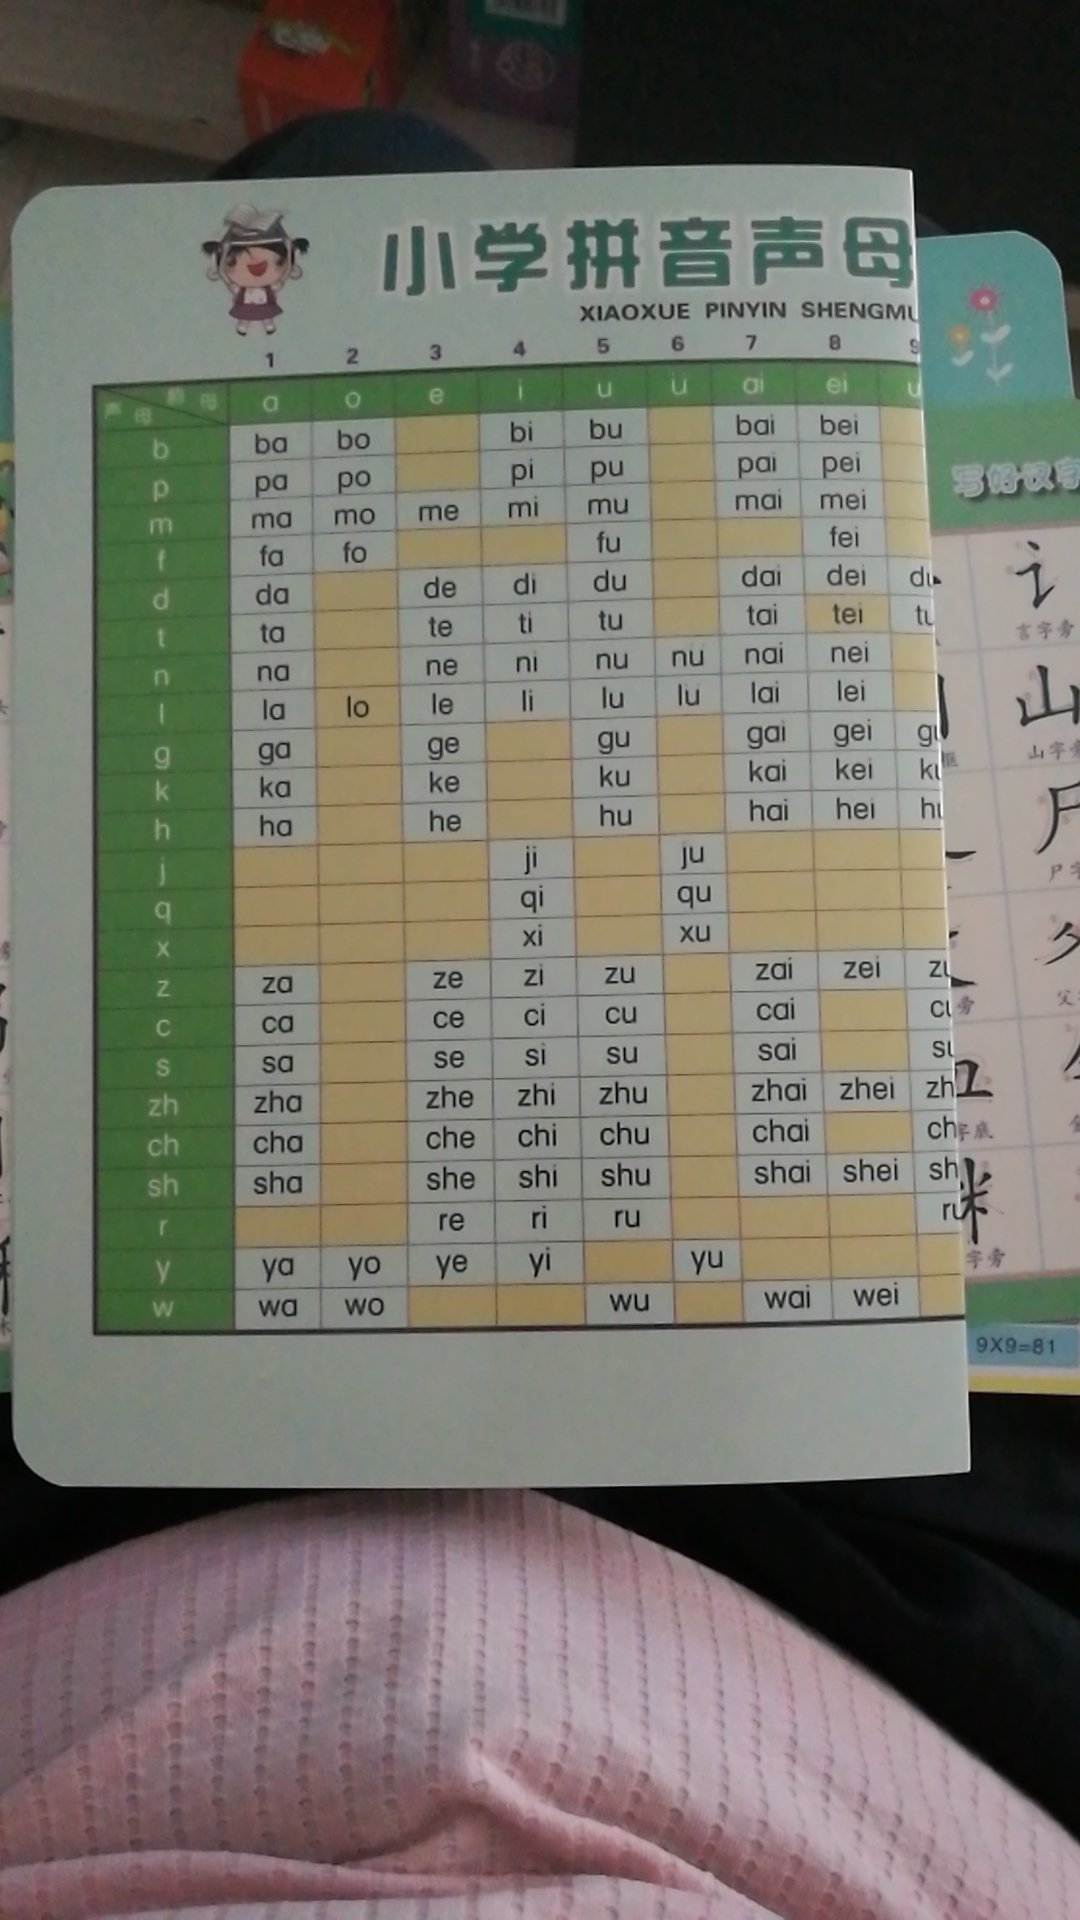 小学拼音声母
XIAOXUE PINYIN SHENGMU
1 2 3 4 5 6 7 8 9
声母 韵母 a o e i u ü ai ei u
b ba bo bi bu bai bei
p pa po pi pu pai pei
m ma mo me mi mu mai mei
f fa fo fu fei
d da de di du dai dei du
t ta te ti tu tai tei tu
n na ne ni nu nu nai nei
l la lo le li lu lu lai lei
g ga ge gu gai gei gu
k ka ke ku kai kei ku
h ha he hu hai hei hu
j ji ju
q qi qu
x xi xu
z za ze zi zu zai zei zu
c ca ce ci cu cai cu
s sa se si su sai su
zh zha zhe zhi zhu zhai zhei zh
ch cha che chi chu chai ch
sh sha she shi shu shai shei sh
r re ri ru ru
y ya yo ye yi yu
w wa wo wu wai wei
写好汉字
讠
言字旁
山
山字旁
尸
尸字
父
字底
字旁
9X9=81